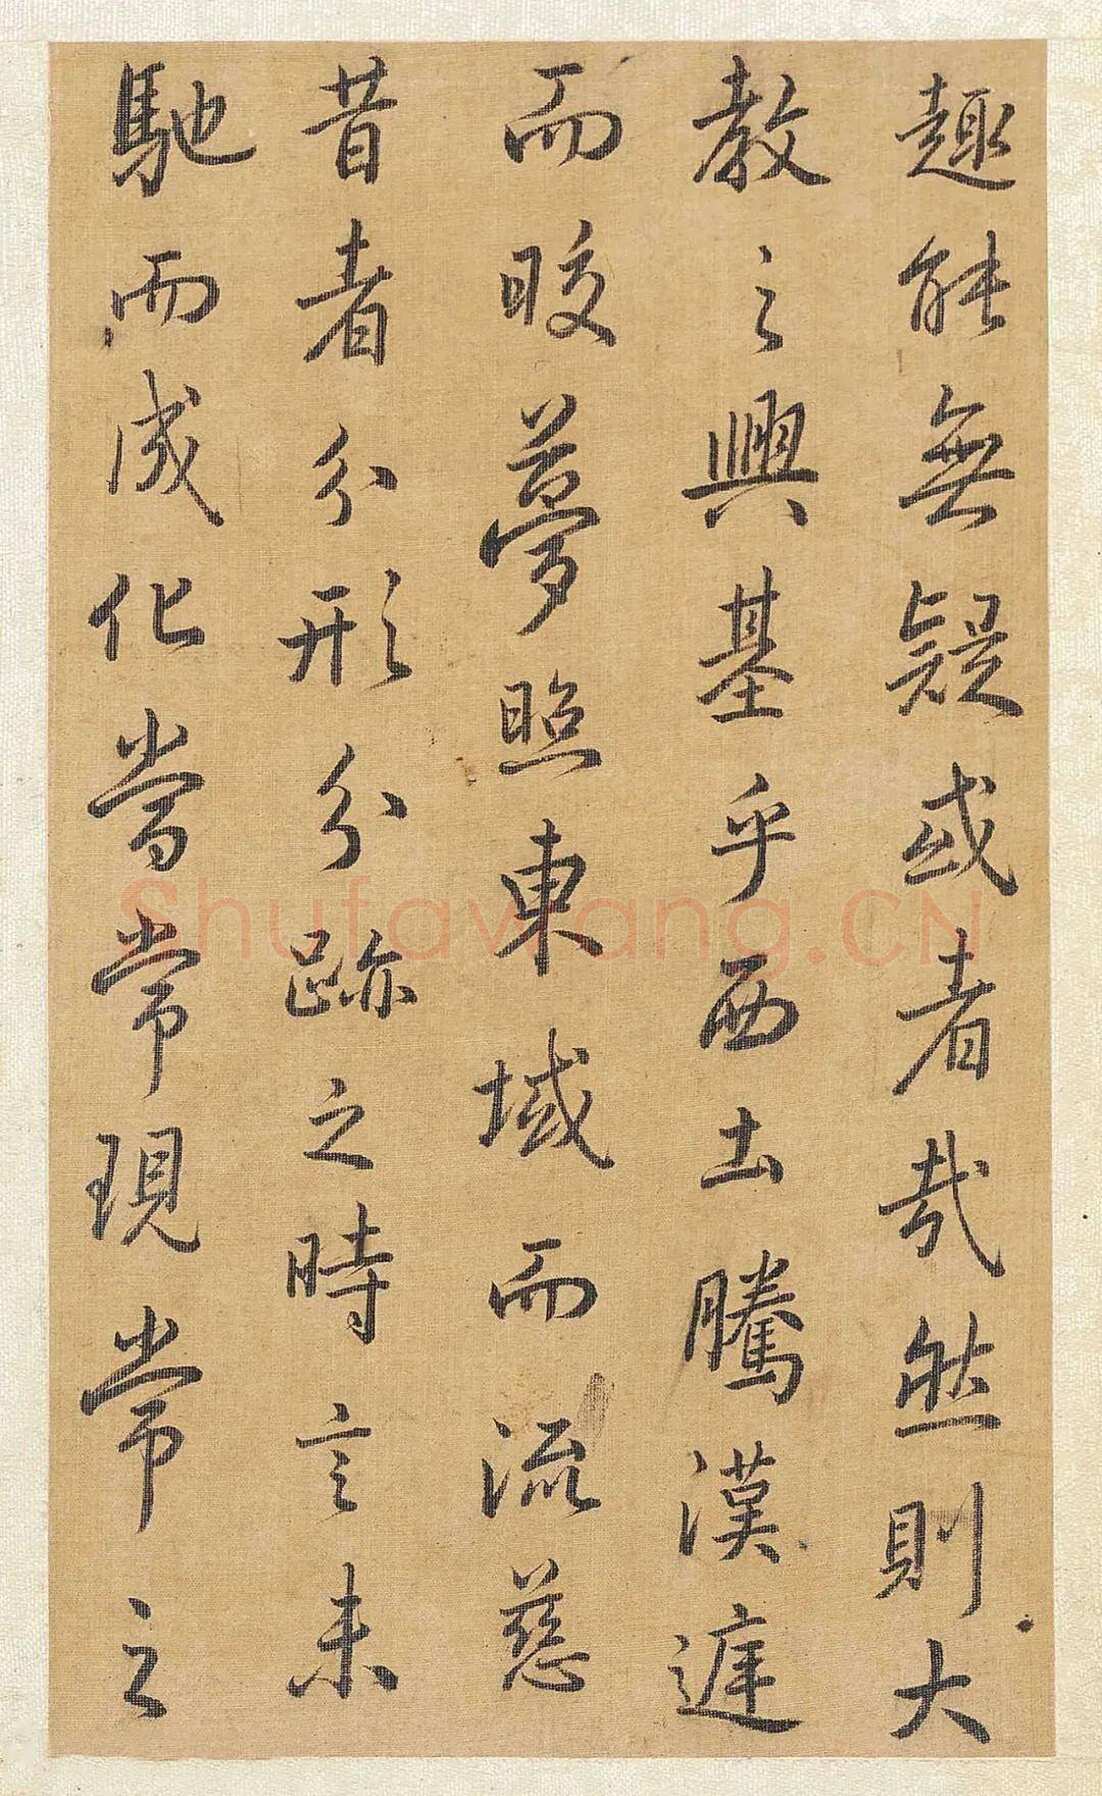 趣能無疑或者哉然則大
教之興基乎西土騰漢遅
而皎夢照東域而流慈
昔者分形分跡之時言未
馳而成化當常現常之
Shufawang.CN